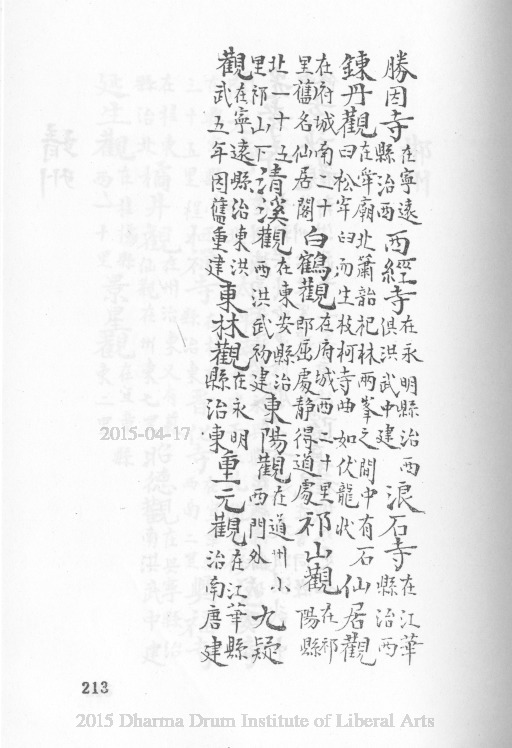 勝因寺在寧遠縣治西西經寺在永明縣治西俱洪武中建浪石寺在江華縣治西
鍊丹觀在舜廟北簫韶祀林兩峯之間中有石曰松牢曰而生枝柯寺曲如伏龍狀仙居觀
在府城南二十里舊名仙居閣白鶴觀在府城西二十里郎屈處静得道處祁山觀在祁陽縣
北一十五里祁山下清溪觀在東安縣治西洪武初建東陽觀在道州小西門外九疑
觀在寧遠縣治東洪武五年因舊重建東林觀在永明縣治東重元觀在江華縣治南唐建
2015-04-17
213
2015 Dharma Drum Institute of Liberal Arts